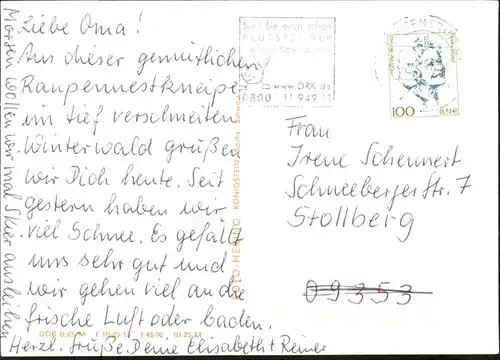 Liebe Oma!
Aus dieser gemütlichen
Raupennestkneipe
im tief verschneiten
Winterwald grüßen
wir Dich heute. Seit
gestern haben wir
viel Schnee. Es gefällt
uns sehr gut und
wir gehen viel an die
frische Luft oder baden.
Herzl. Grüße. Deine Elisabeth + Reiner
Morgen wollen wir mal Skier ausleihen
Sind Sie auch schon
BLUTSPENDER
www.DRK.de
0800 11 949 11
100
0,51€
Frau
Irene Schennert
Schneeberger Str. 7
Stollberg
09353
FOTO-HERTWIG KÖNIGSTEIN